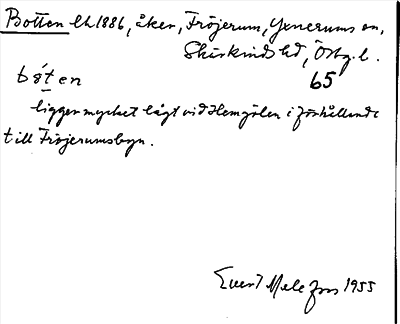 Botten lh 1886, åker, Fröjerum, Yxnerums sn,
Skärkinds hd, Östg. l.
båt en 65
ligger mycket lågt vid Hemgölen i förhållande
till Fröjerumsbyn.
Evert Melefors 1955